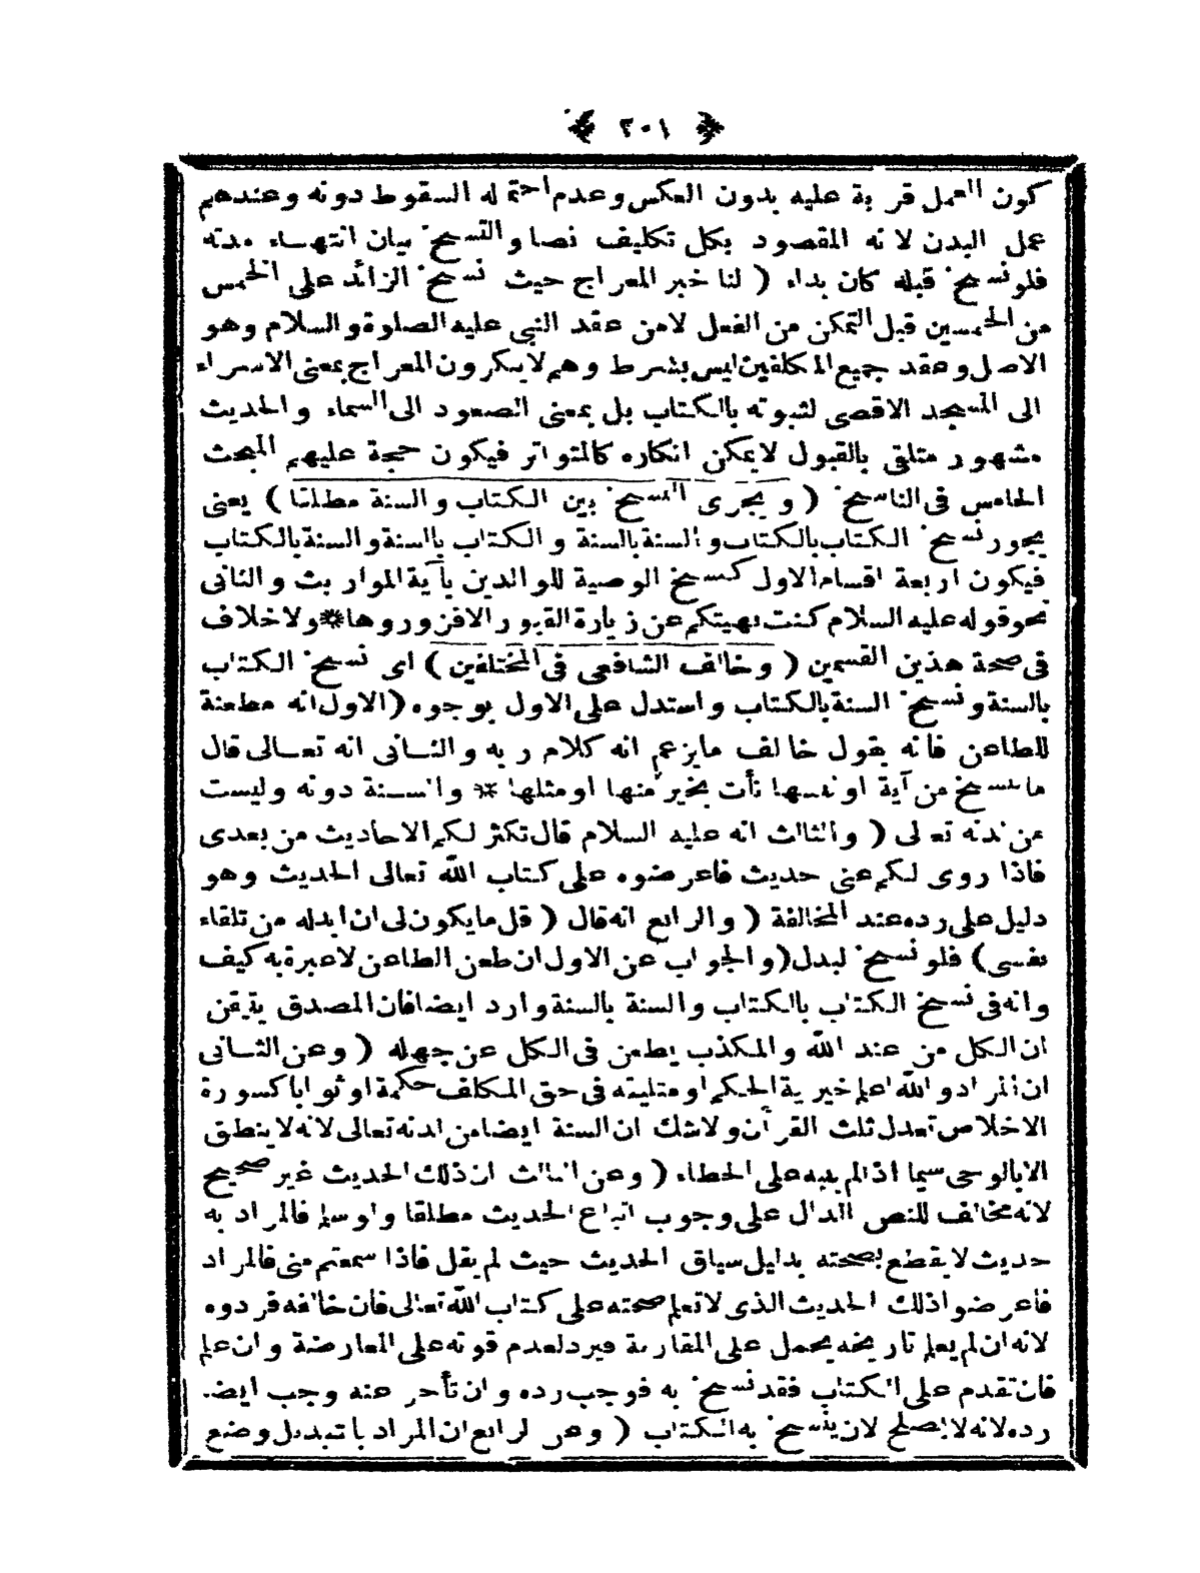 ﴿ ٢٠١ ﴾
كون العمل قربة عليه بدون العكس وعدم احتماله السقوط دونه وعندهم
عمل البدن لانه المقصود بكل تكليف نصا والنسخ بيان انتهاء مدته
فلو نسخ قبله كان بداء ( لنا خبر المعراج حيث نسخ الزائد على الخمس
من الخمسين قبل التمكن من الفعل لا من عقد النبى عليه الصلوة والسلام وهو
الاصل وعقد جميع المكلفين ليس بشرط وهم لا ينكرون المعراج بمعنى الاسراء
الى المسجد الاقصى لثبوته بالكتاب بل بمعنى الصعود الى السماء والحديث
مشهور متلقى بالقبول لا يمكن انكاره كالمتواتر فيكون حجة عليهم المبحث
الخامس فى الناسخ ( ويجرى النسخ بين الكتاب والسنة مطلقا ) يعنى
يجوز نسخ الكتاب بالكتاب والسنة بالسنة والكتاب بالسنة والسنة بالكتاب
فيكون اربعة اقسام الاول كنسخ الوصية للوالدين بآية المواريث والثانى
نحو قوله عليه السلام كنت نهيتكم عن زيارة القبور الا فزوروها * ولا خلاف
فى صحة هذين القسمين ( وخالف الشافعى فى المختلفين ) اى نسخ الكتاب
بالسنة ونسخ السنة بالكتاب واستدل على الاول بوجوه ( الاول انه مطعنة
للطاعن فانه يقول خالف ما يزعم انه كلام ربه والثانى انه تعالى قال
ما ننسخ من آية او ننسها نأت بخير منها او مثلها * والسنة دونه وليست
من لدنه تعالى ( والثالث انه عليه السلام قال تكثر لكم الاحاديث من بعدى
فاذا روى لكم عنى حديث فاعرضوه على كتاب الله تعالى الحديث وهو
دليل على رده عند المخالفة ( والرابع انه قال ( قل ما يكون لى ان ابدله من تلقاء
نفسى ) فلو نسخ لبدل ( والجواب عن الاول ان طعن الطاعن لا عبرة به كيف
وانه فى نسخ الكتاب بالكتاب والسنة بالسنة وارد ايضا فان المصدق يتيقن
ان الكل من عند الله والمكذب يطعن فى الكل عن جهله ( وعن الثانى
ان المراد والله اعلم خيرية الحكم او مثليته فى حق المكلف حكمة او ثوابا كسورة
الاخلاص تعدل ثلث القرأن ولا شك ان السنة ايضا من لدنه تعالى لانه لا ينطق
الا بالوحى سيما اذا لم ينبه على الخطاء ( وعن الثالث ان ذلك الحديث غير صحيح
لانه مخالف للنص الدال على وجوب اتباع الحديث مطلقا ولو سلم فالمراد به
حديث لا يقطع بصحته بدليل سياق الحديث حيث لم يقل فاذا سمعتم منى فالمراد
فاعرضوا ذلك الحديث الذى لا تعلم صحته على كتاب الله تعالى فان خالفه فردوه
لانه ان لم يعلم تاريخه يحمل على المقارنة فيرد لعدم قوته على المعارضة وان علم
فان تقدم على الكتاب فقد نسخ به فوجب رده وان تأخر عنه وجب ايضا
رده لانه لا يصلح لان ينسخ به الكتاب ( وعن الرابع ان المراد بالتبديل وضع